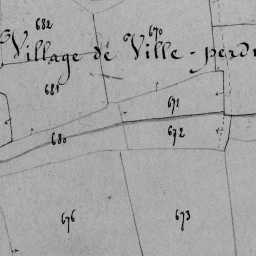 682
670
Village de Ville-perd
681
671
680
672
676
673